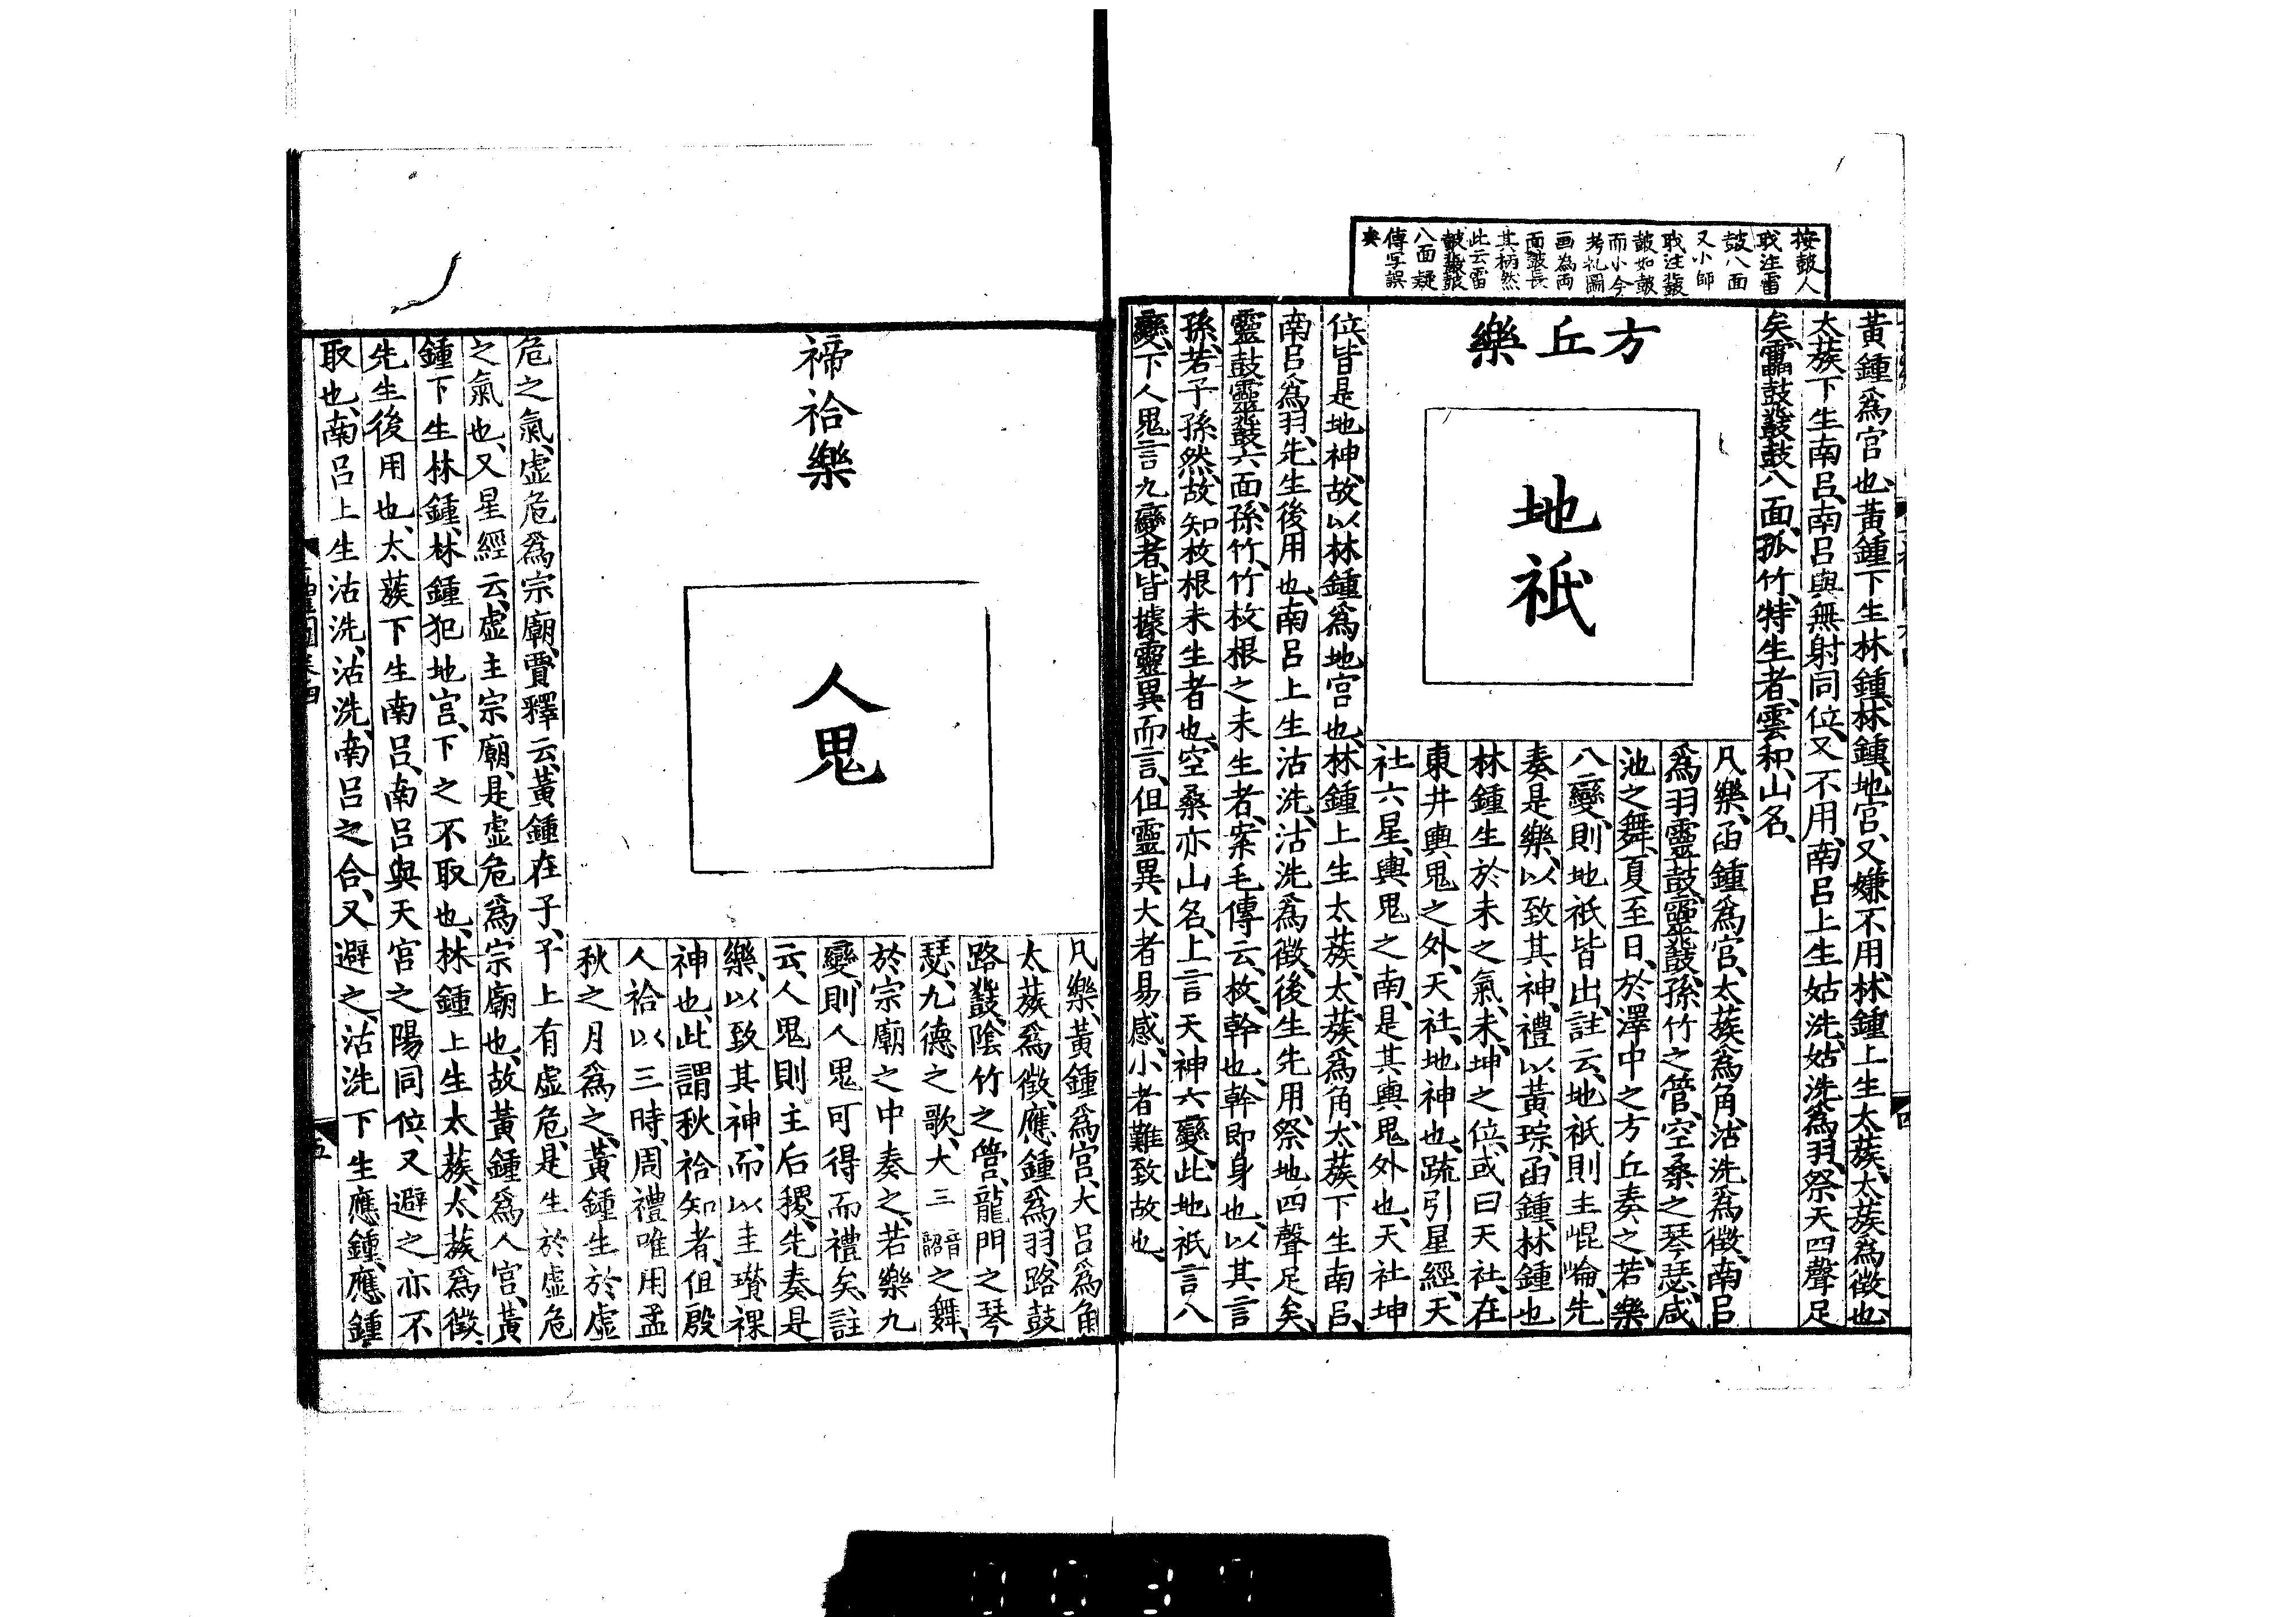 按鼓人
职注雷
鼓八面
又小師
职注鼗
鼗如鼓
而小今
考礼圖
画為兩
面鼓長
其柄然
此云雷
鼓鼗鼓
八面疑
傳写誤
矣
黃鍾爲宮也、黃鍾下生林鍾、林鍾、地宮、又嫌不用、林鍾上生太蔟、太蔟爲徵也、
太蔟下生南呂、南呂與無射同位、又不用、南呂上生姑洗、姑洗爲羽、祭天四聲足
矣、靁鼓鼗鼓八面、孤竹、特生者、雲和、山名、
方丘樂
地祇
凡樂、函鍾爲宮、太蔟爲角、沽洗爲徵、南呂
爲羽、靈鼓、靈鼗、孫竹之管、空桑之琴瑟、咸
池之舞、夏至日、於澤中之方丘奏之、若樂
八變、則地祇皆出、註云、地祇則主崐崘、先
奏是樂、以致其神、禮以黃琮、函鍾、林鍾也
林鍾生於未之氣、未、坤之位、或曰天社、在
東井輿鬼之外、天社、地神也、疏引星經、天
社六星、輿鬼之南、是其輿鬼外也、天社坤
位、皆是地神、故以林鍾爲地宮也、林鍾上生太蔟、太蔟爲角、太蔟下生南呂、
南呂爲羽、先生後用也、南呂上生沽洗、沽洗爲徵、後生先用、祭地四聲足矣、
靈鼓靈鼗六面、孫竹、竹枚根之未生者、案毛傳云、枚、幹也、幹即身也、以其言
孫、若子孫然、故知枚根末生者也、空桑亦山名、上言天神六變、此地祇言八
變、下人鬼言九變者、皆據靈異而言、但靈異大者易感、小者難致故也、
禘祫樂
人鬼
凡樂、黃鍾爲宮、大呂爲角
太蔟爲徵、應鍾爲羽、路鼓
路鼗、陰竹之管、龍門之琴
瑟、九德之歌、大三音韶之舞、
於宗廟之中奏之、若樂九
變、則人鬼可得而禮矣、註
云、人鬼則主后稷、先奏是
樂、以致其神、而以圭瓚祼
神也、此謂秋祫知者、但殷
人祫以三時、周禮唯用孟
秋之月爲之、黃鍾生於虛
危之氣、虛危爲宗廟、賈釋云、黃鍾在子、子上有虛危、是生於虛危
之氣也、又星經云、虛主宗廟、是虛危爲宗廟也、故黃鍾爲人宮、黃
鍾下生林鍾、林鍾犯地宮、下之不取也、林鍾上生太蔟、太蔟爲徵、
先生後用也、太蔟下生南呂、南呂與天宮之陽同位、又避之亦不
取也、南呂上生沽洗、沽洗、南呂之合、又避之、沽洗下生應鍾、應鍾
四
五